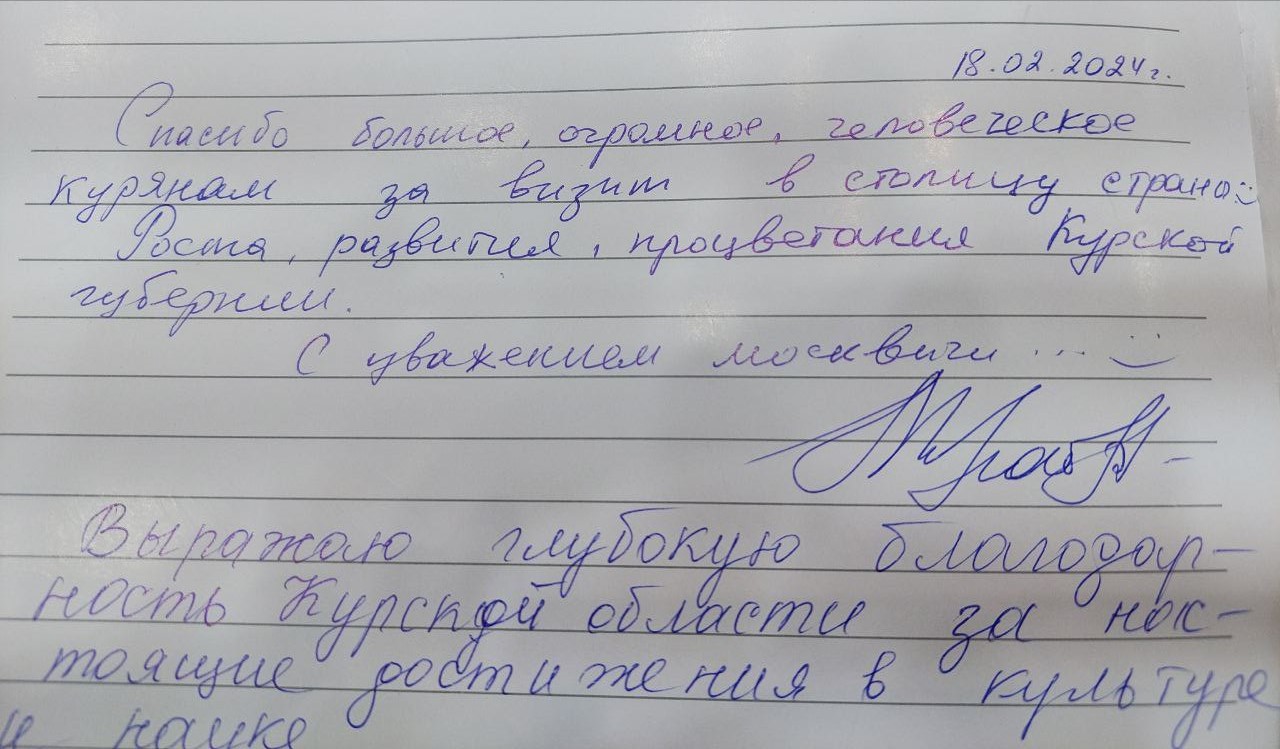 18.02.2024г.
Спасибо большое, огромное, человеческое
курянам за визит в столицу страны
Роста, развития, процветания Курской
губернии.
С уважением москвичи ...
Выражаю глубокую благодар-
ность Курской области за нас-
тоящие достижения в культуре
и науке